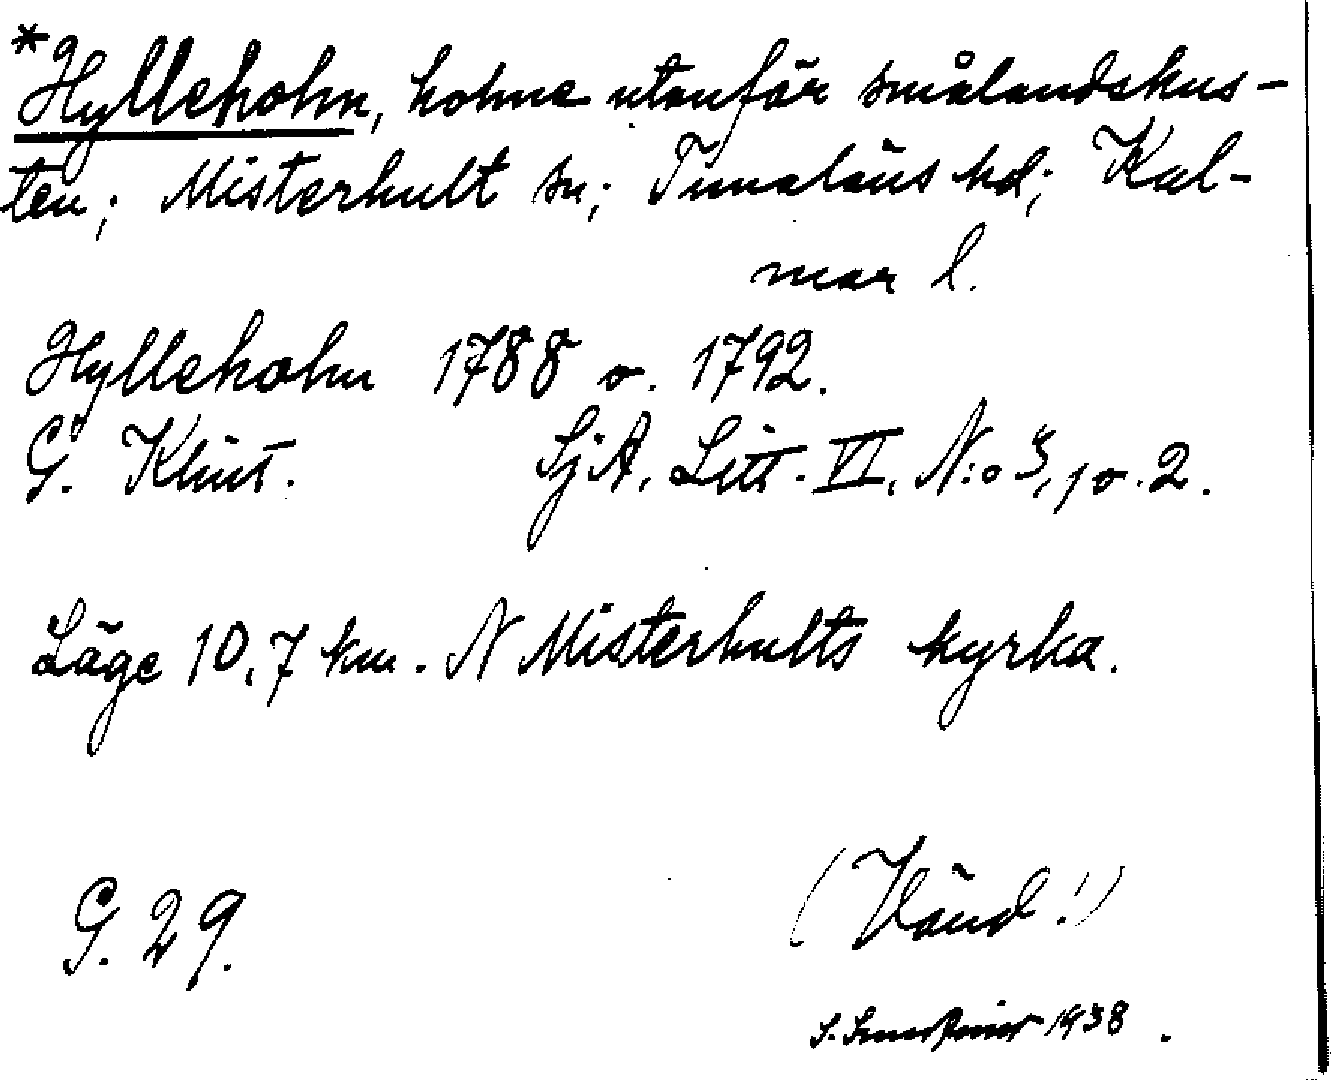 *Hylleholm, holme utanför smålandskus-
ten; Misterhult sn; Tunaläns hd; Kal-
mar l.
Hylleholm 1788 o. 1792.
G. Klint. SjA, Litt. VI, N:o 3, 1 o. 2.
Läge 10,7 km. N Misterhults kyrka.
G. 29.
(Vänd!)
S. 1938.